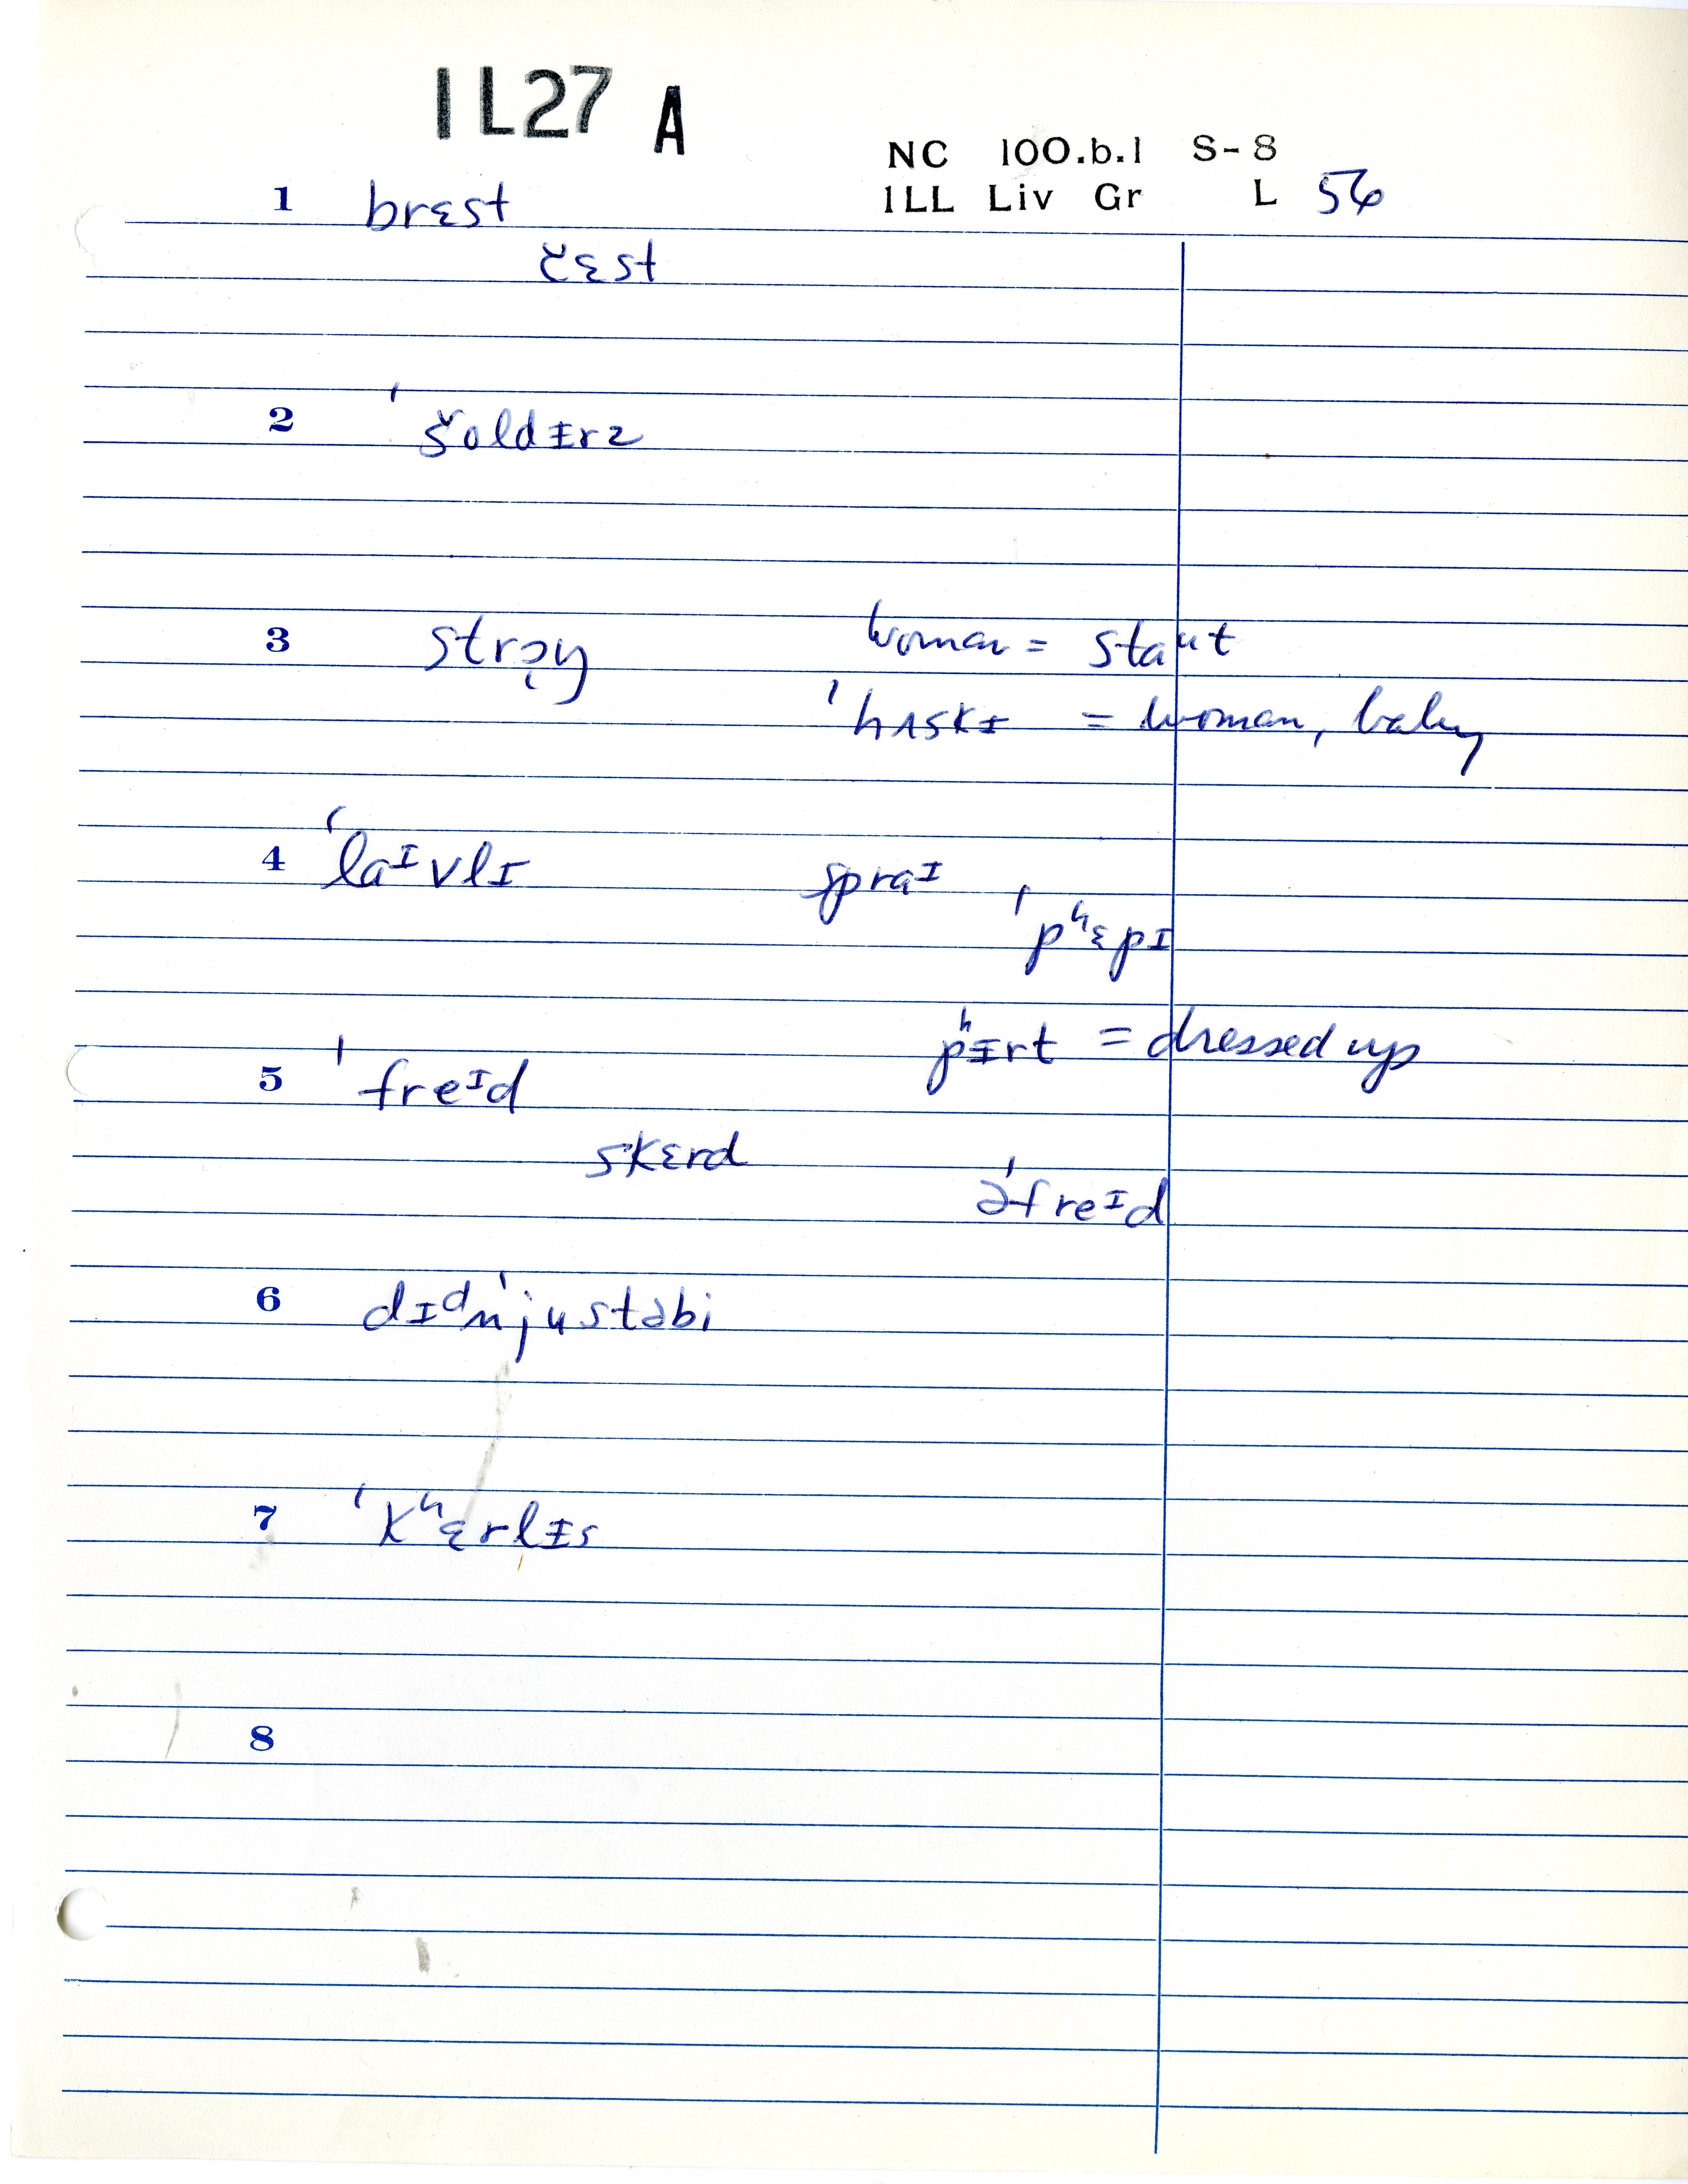 1L27 A
NC 100.b.1 S-8
1LL Liv Gr L 56
1 brɛst
č̣ɛst
2 ˈšoldɪrz
3 strɔŋ woman = staᵘt
ˈhʌskɪ = woman, baby
4 ˈlaᴵvlɪ spraᴵ
ˈpʰɛpɪ
pʰɪrt = dressed up
5 ˈfreᴵd
skɛrd
əˈfreᴵd
6 dɪᵈnˈjustəbi
7 ˈkʰɛrlɪs
8